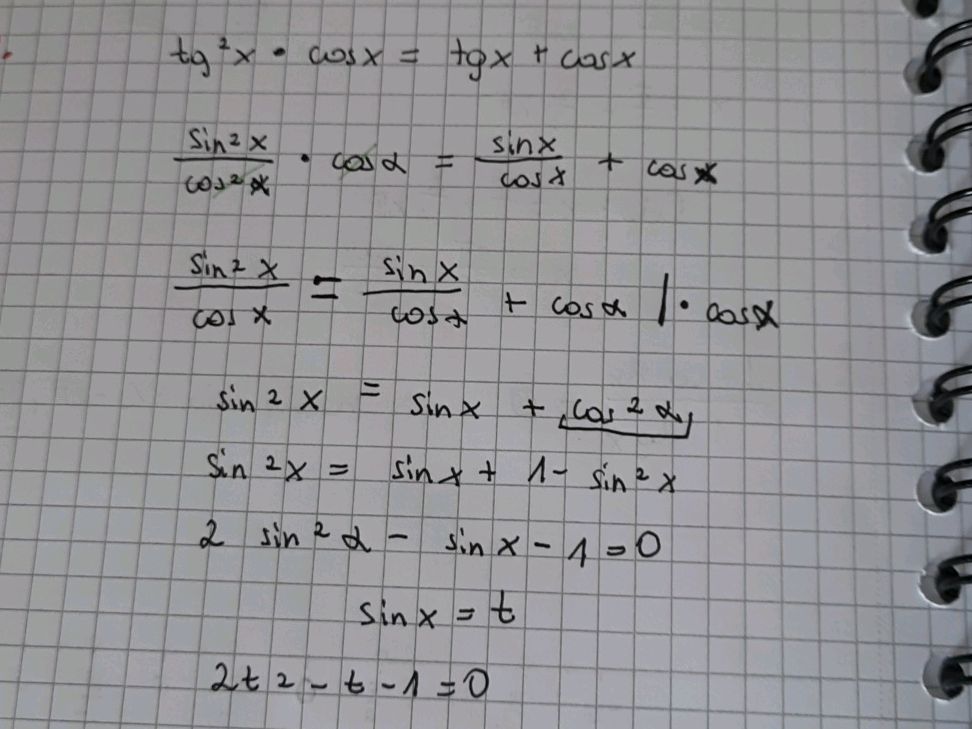 tg²x · cosx = tgx + cosx
sin²x/cos²x · cosα = sinx/cosx + cosx
sin²x/cosx = sinx/cosα + cosα | · cosx
sin²x = sinx + cos²α
sin²x = sinx + 1 - sin²x
2 sin²α - sinx - 1 = 0
sinx = t
2t2 - t - 1 = 0